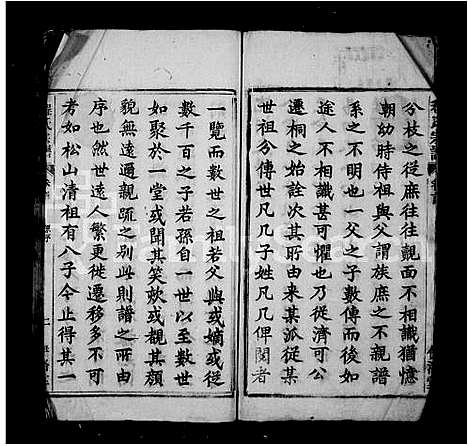 分枝之從庶往往覿面不相識猶憶
朝幼時侍祖與父謂族庶之不親譜
系之不明也一父之子數傳而後如
途人不相識甚可懼也乃從濟可公
遷桐之始詮次其所由来某派從某
世祖分傳世凡几子姓凡几俾閱者
一覽而數世之祖若父與或嫡或從
數千百之子若孫自一世以至數世
如聚於一堂或聞其笑欬或覩其顏
貌無遠通親疏之别此則譜之所由
序也然世遠人繁更徙遷移多不可
考如松山清祖有八子今止得其一